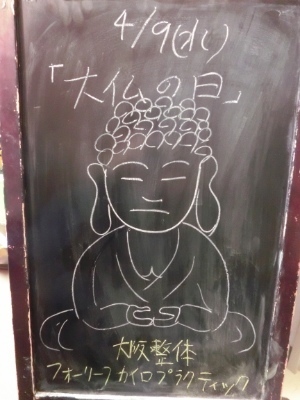 4/9(水)
「大仏の日」
大阪整体
フォーリーフカイロプラクティック